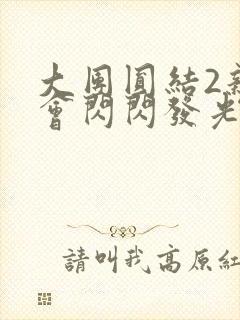 大團圓結2
會閃閃發光
請叫我高原紅